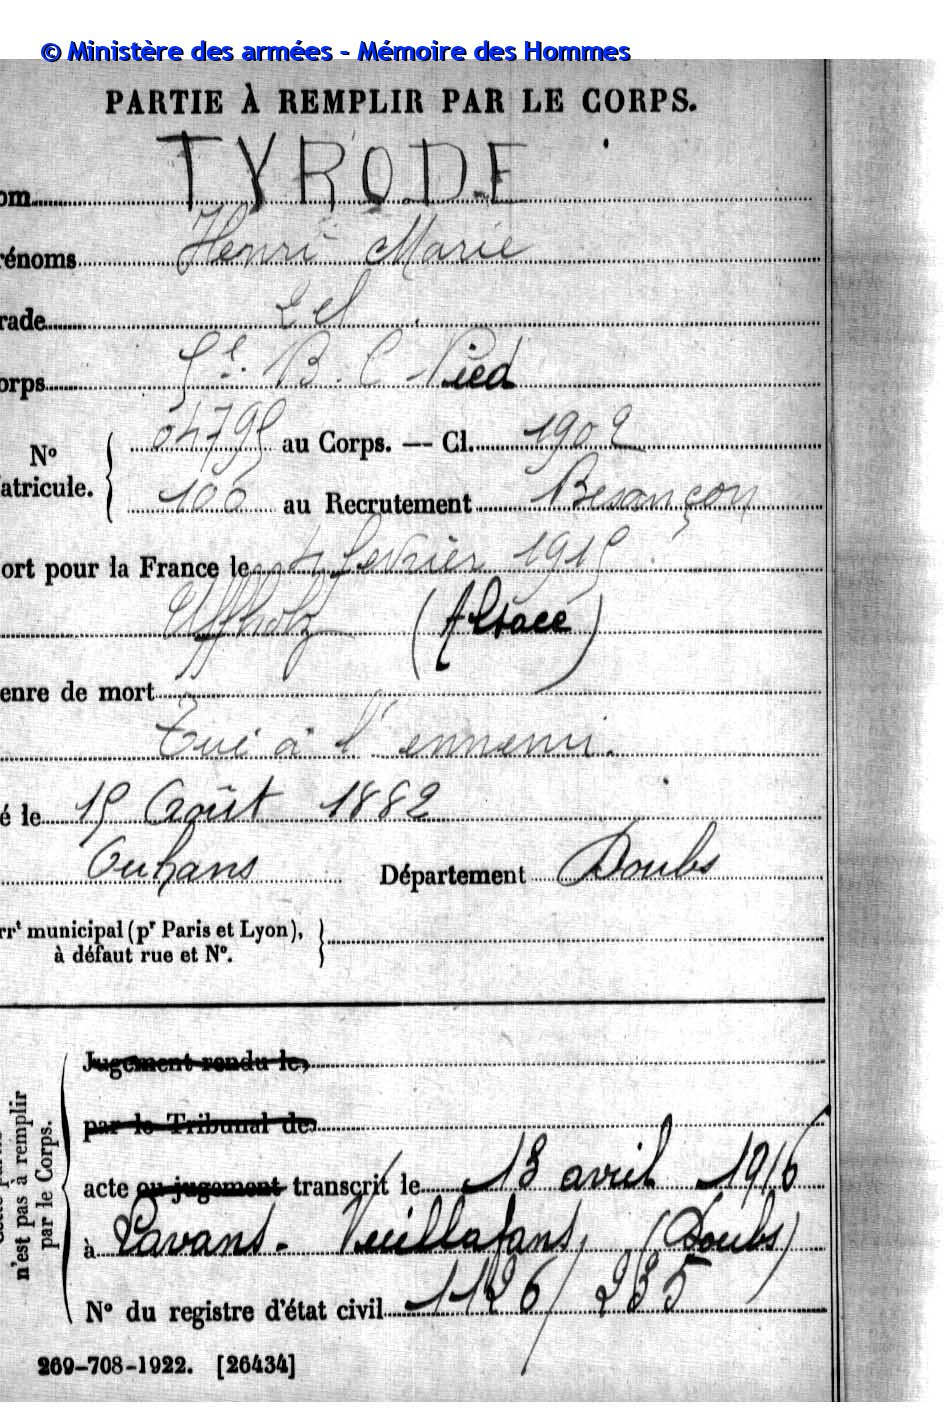 © Ministère des armées - Mémoire des Hommes
PARTIE À REMPLIR PAR LE CORPS.
om TYRODE
rénoms Henri Marie
rade 2 cl
orps 5e. B. C. Pied
N° atricule. { 04795 au Corps. — Cl. 1902
106 au Recrutement Besançon
ort pour la France le 4 février 1915
Uffholz (Alsace)
enre de mort
Tué à l'ennemi.
é le 15 Août 1882
Ouhans Département Doubs
rrt municipal (pr Paris et Lyon),
à défaut rue et N°.
n'est pas à remplir
par le Corps.
Jugement rendu le,
par le Tribunal de
acte ou jugement transcrit le 13 avril 1916
à Lavans-Vuillafans, (Doubs)
N° du registre d'état civil 1126/235
269-708-1922. [26434]